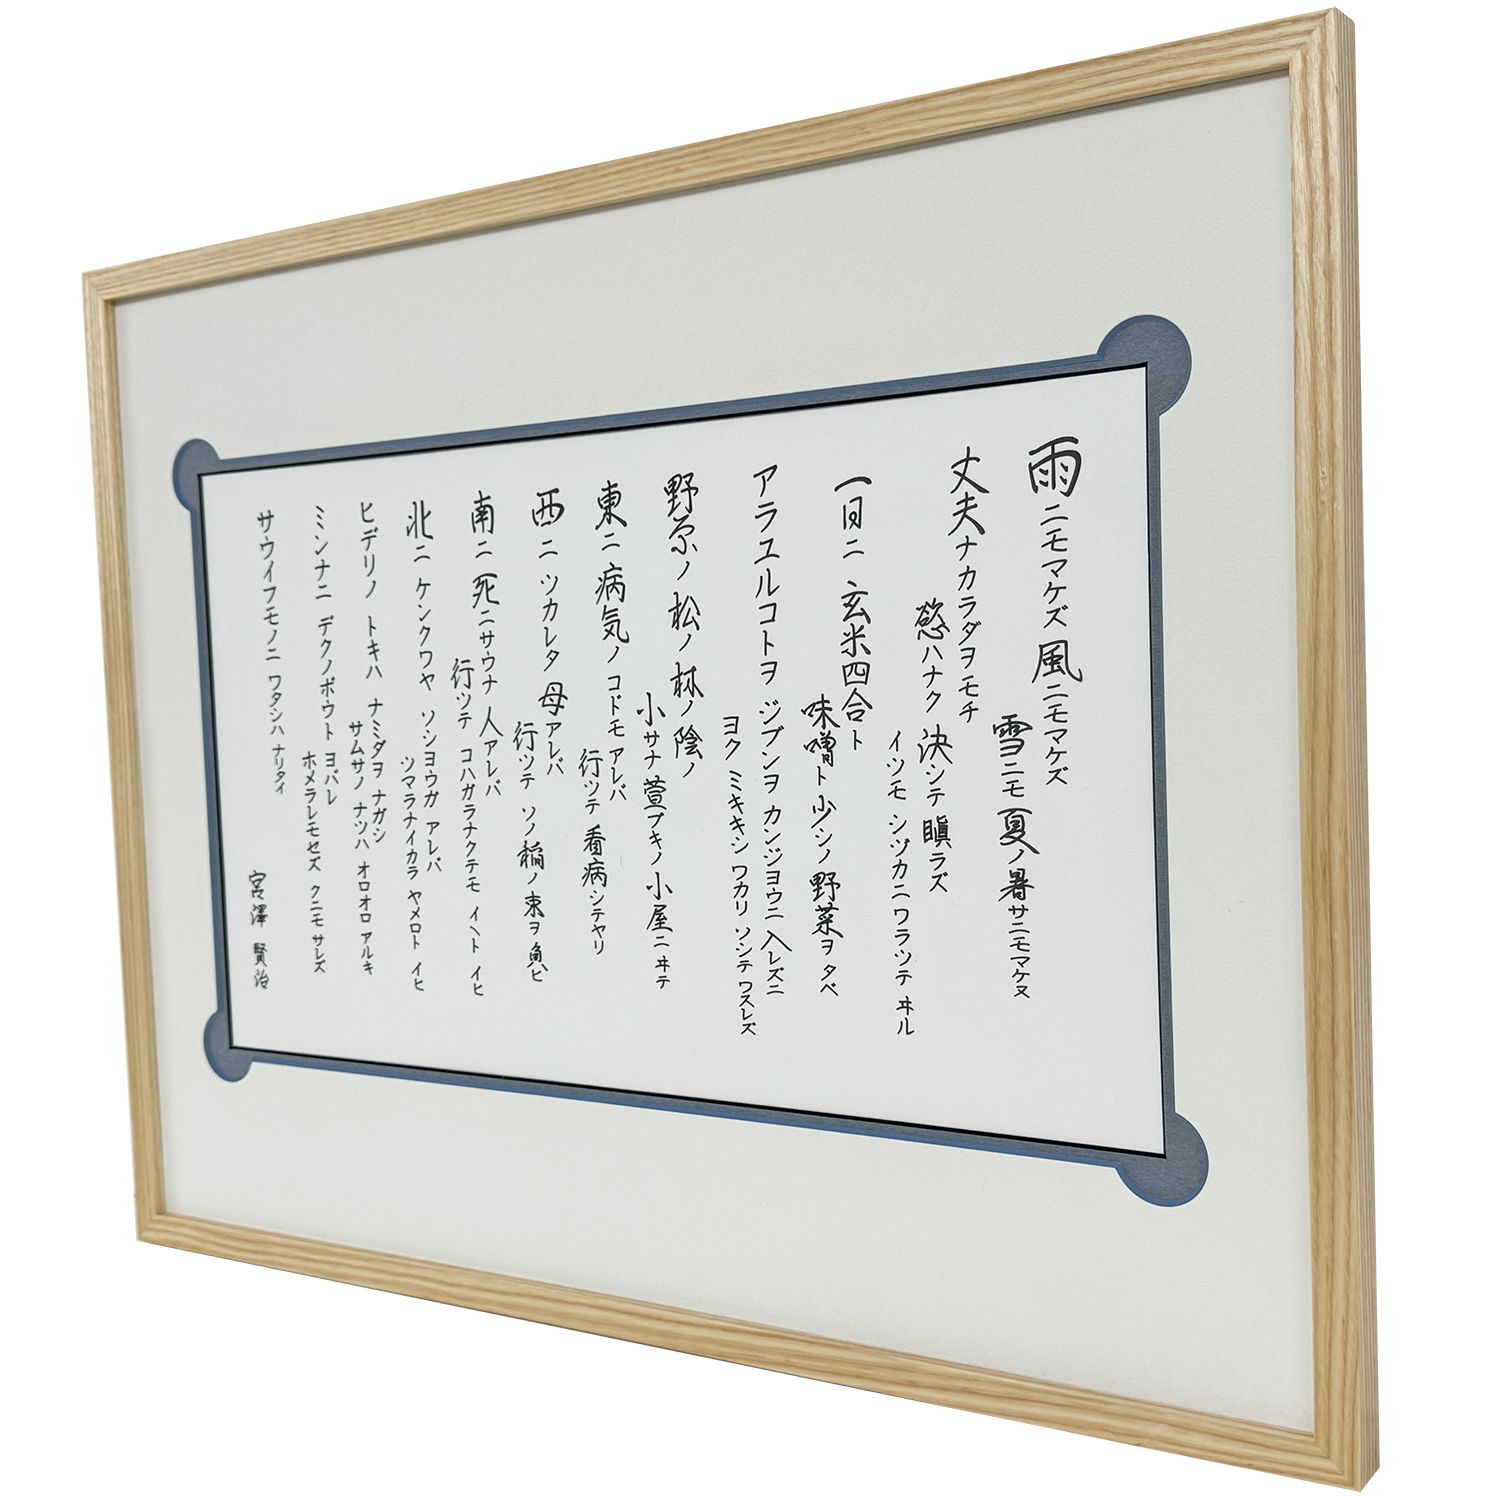 雨ニモマケズ 風ニモマケズ
雪ニモ 夏ノ暑サニモマケヌ
丈夫ナカラダヲモチ
慾ハナク 決シテ 瞋ラズ
イツモ シヅカニ ワラツテ ヰル
一日ニ 玄米四合ト
味噌ト 少シノ 野菜ヲ タベ
アラユルコトヲ ジブンヲ カンジヨウニ 入レズニ
ヨク ミキキシ ワカリ ソシテ ワスレズ
野原ノ 松ノ 林ノ 陰ノ
小サナ 萱ブキノ 小屋ニ ヰテ
東ニ 病気ノ コドモ アレバ
行ツテ 看病シテヤリ
西ニ ツカレタ 母アレバ
行ツテ ソノ 稲ノ 束ヲ 負ヒ
南ニ 死ニサウナ 人アレバ
行ツテ コハガラナクテモ イヽト イヒ
北ニ ケンクワヤ ソシヨウガ アレバ
ツマラナイカラ ヤメロト イヒ
ヒデリノ トキハ ナミダヲ ナガシ
サムサノ ナツハ オロオロ アルキ
ミンナニ デクノボウト ヨバレ
ホメラレモセズ クニモ サレズ
サウイフモノニ ワタシハ ナリタイ
宮澤 賢治